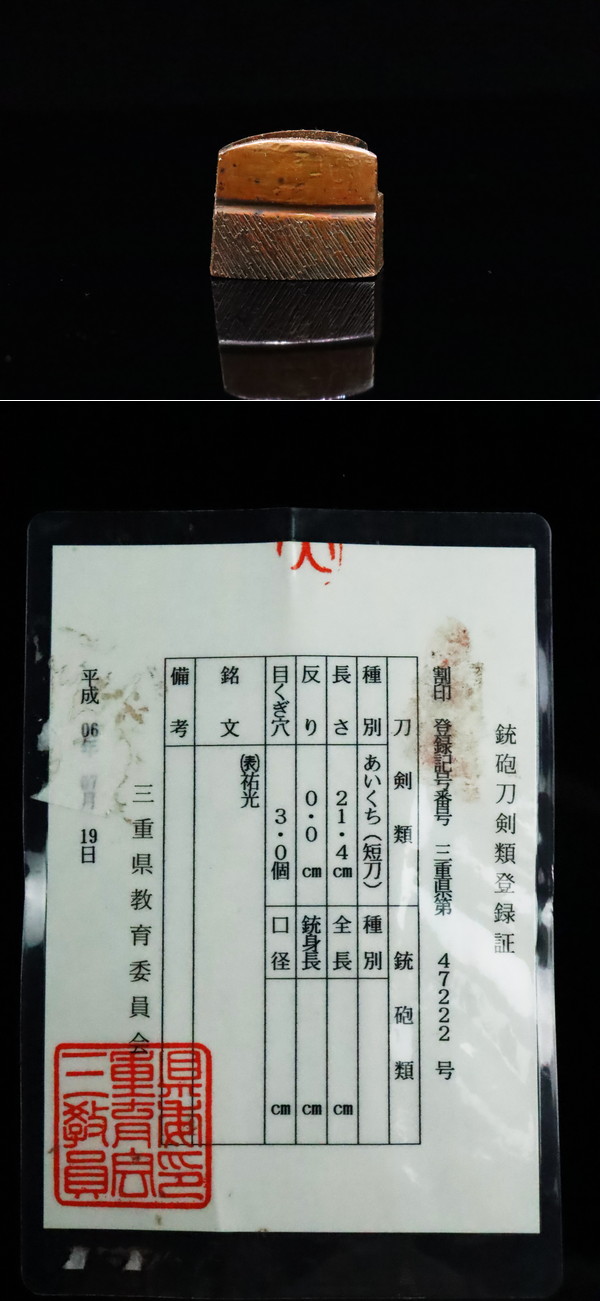 銃砲刀剣類登録証
割印 登録記号番号 三重県第 47222 号
刀剣類
銃砲類
種別 あいくち(短刀)
種別
長さ 21・4cm
全長 cm
反り 0・0 cm
銃身長 cm
目くぎ穴 3・0個
口径 cm
銘文 ㊤祐光
備考
三重県教育委員会
平成 06年 07月 19日